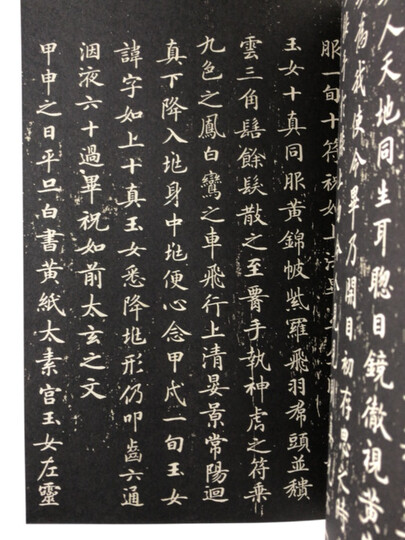 人天地同生耳聰目鏡徹視黃
為我使令畢乃開目初存思之時
服一旬十符祝如上法畢
玉女十真同服黃錦帔紫羅飛羽帬頭並穨
雲三角髻餘髮散之至腰手執神虎之符乗
九色之鳳白鸞之車飛行上清晏景常陽迴
真下降入垗身中垗便心念甲戌一旬玉女
諱字如上十真玉女悉降垗形仍叩齒六通
洇液六十過畢祝如前太玄之文
甲申之日平旦白書黃紙太素宮玉女左靈